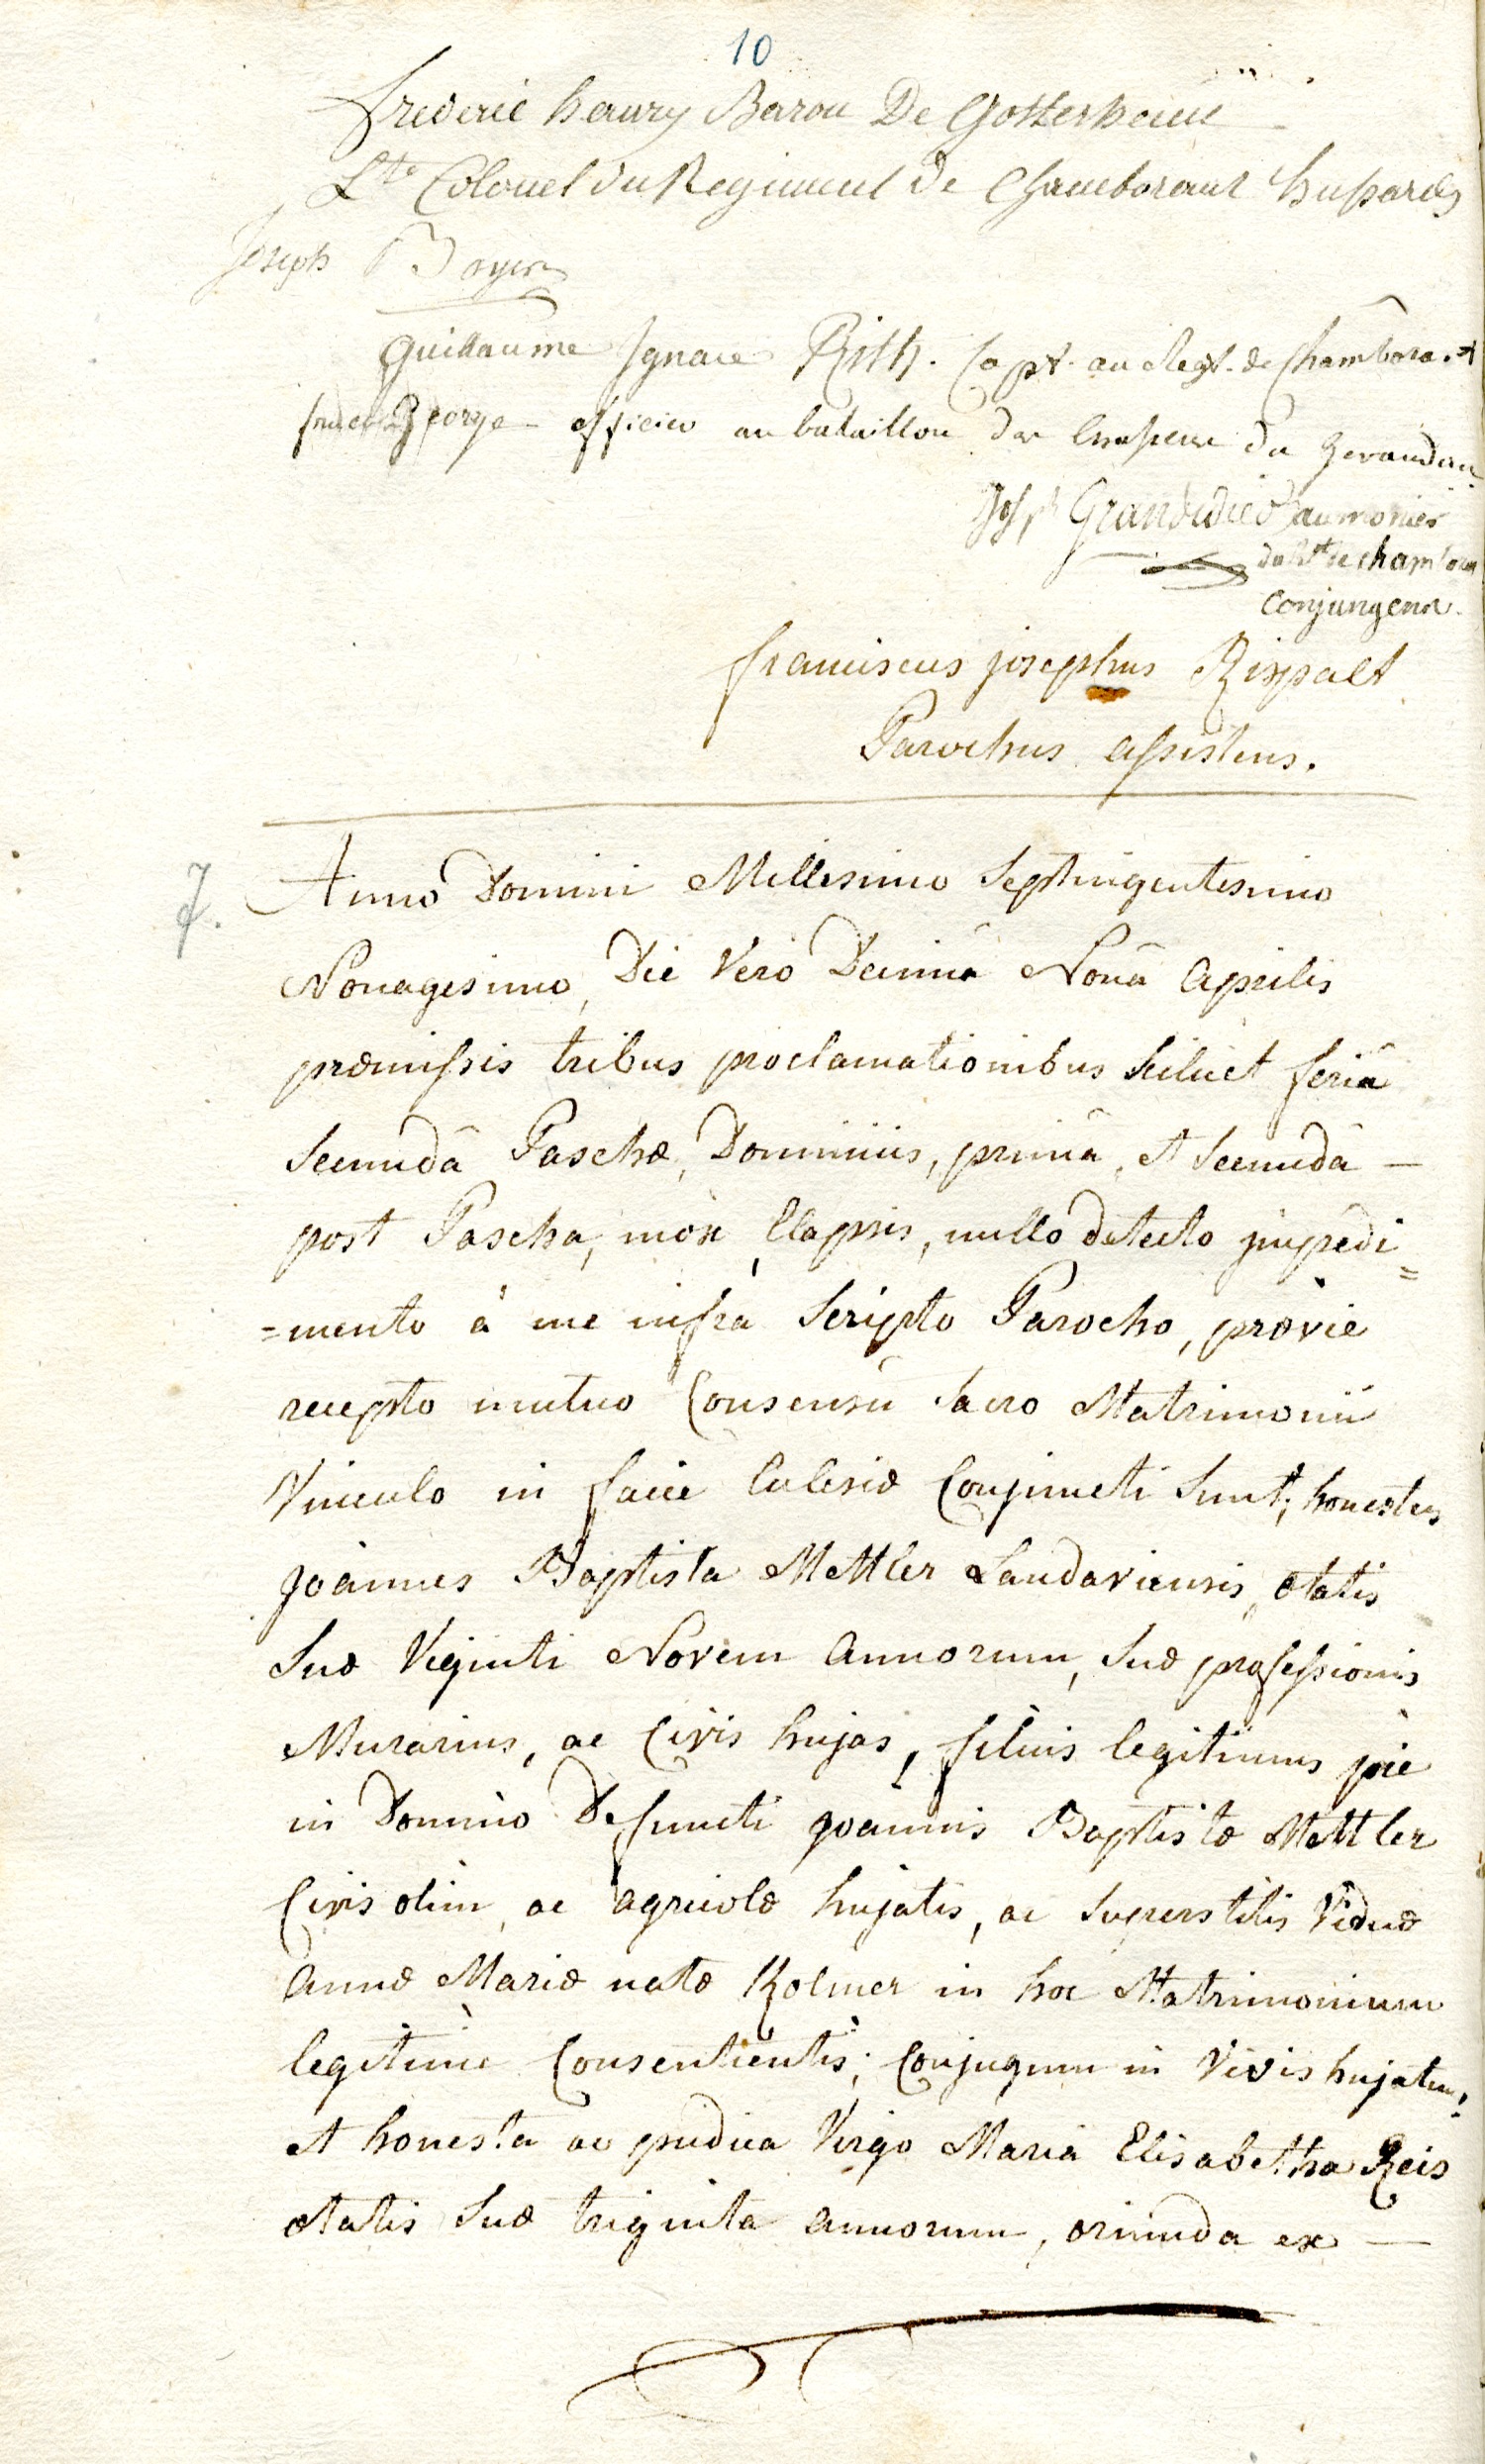 10
frederic henry Baron De Gottesheim
Lt. Colonel du Regiment de Chamborant hussards
Joseph Boyer
Guillaume Ignace Rith. Capt. au Regt. de Chamborant
George officier au bataillon des Chasseurs du Gevaudan
Jos​ph Grandidier aumonier
du Rt de chamborant
conjungens.
franciscus josephus Rispalt
Parochus assistens.
7.
Anno Domini Millesimo Septingentesimo
Nonagesimo, Die Vero Decimâ Nonâ aprilis
præmissis tribus proclamationibus scilicet feriâ
secundâ Paschæ, Dominicis, primâ, et secundâ —
post Pascha, mox Elapsis, nullo detecto impedi=
=mento à me infra scripto Parocho, prævie
recepto mutuo Consensu sacro Matrimonii
Vinculo in facie Eclesiæ Conjuncti sunt; honestus
joännes Baptista Mettler Landaviensis, ætatis
suæ Viginti Novem annorum, suæ professionis
Murarius, ac Civis hujas, filius legitimus piè
in Domino Defuncti joannis Baptistæ Mettler
Civis olim, ac agricolæ hujatis, ac superstitis Viduæ
annæ Mariæ natæ Kolmer in hoc Matrimonium
legitimè Consentientis; Conjugum in Vivis hujatum,
et honesta ac pudica Virgo Maria Elisabetha Reis
ætatis suæ triginta annorum, oriunda ex —